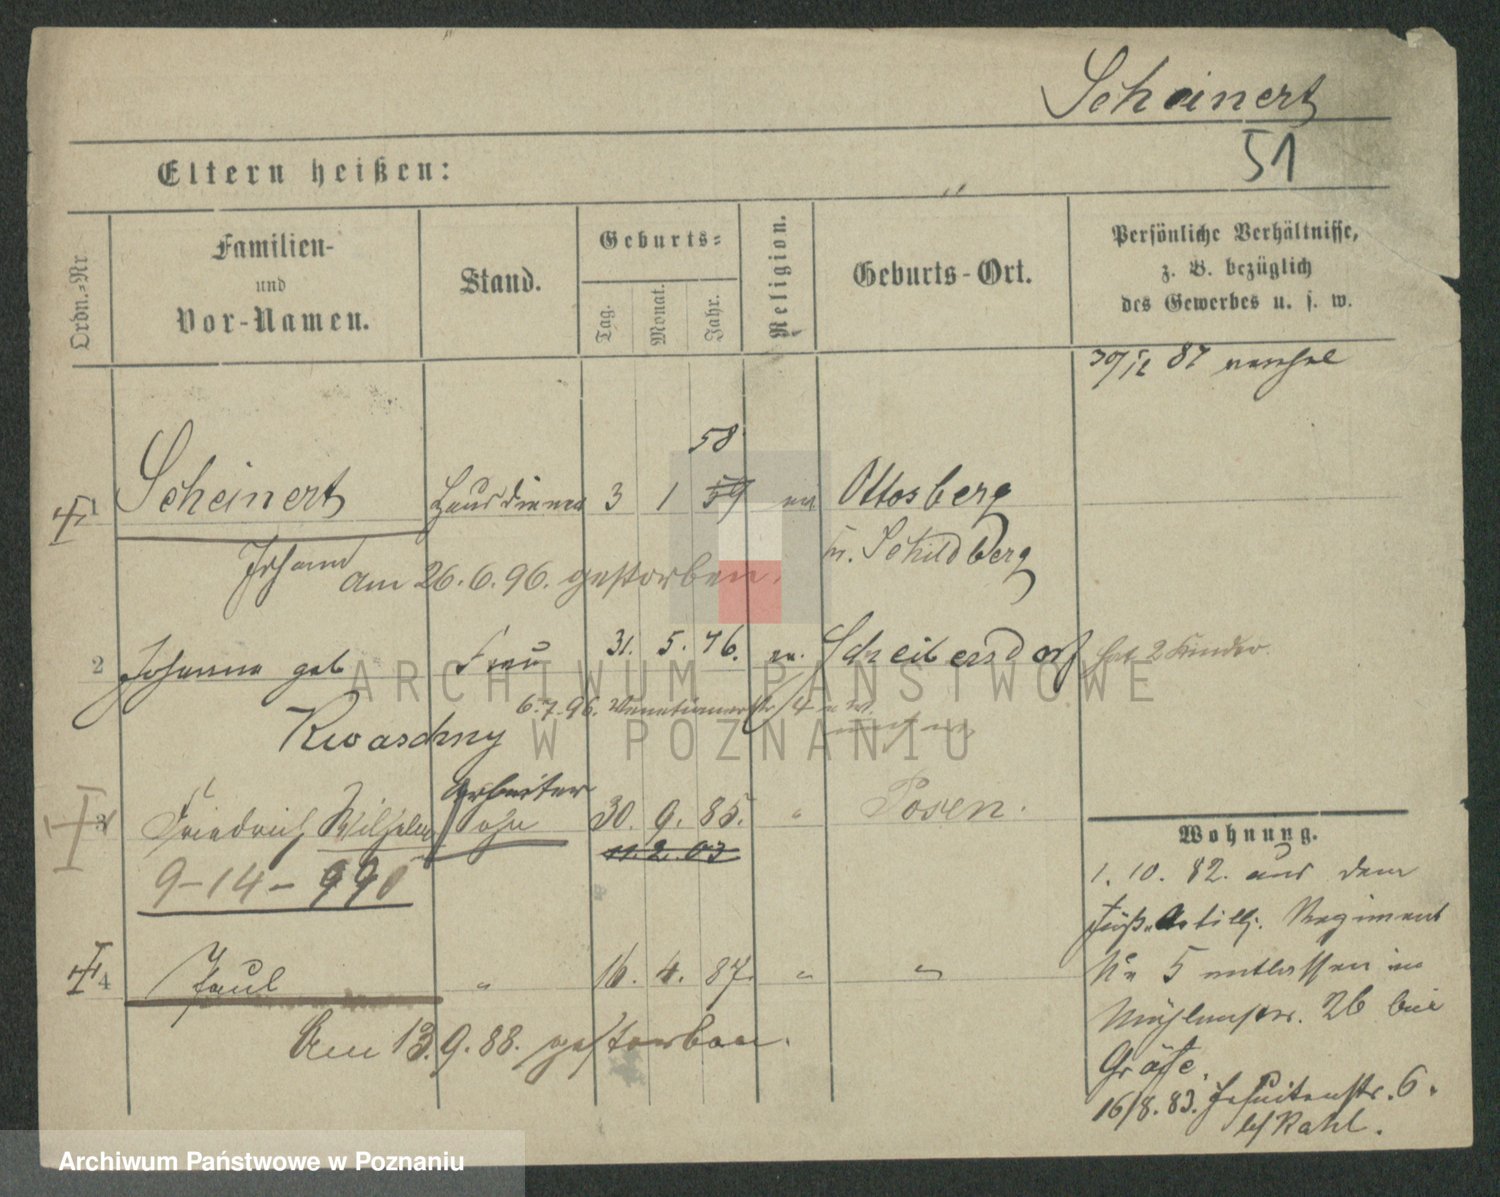 Scheinert
51
Eltern heißen:
Ordn.-Nr
Familien-
und
Vor-Namen.
Stand.
Geburts-
Tag.
Monat.
Jahr.
Religion.
Geburts-Ort.
Persönliche Verhältnisse,
z. B. bezüglich
des Gewerbes u. s. w.
87
58
1 Scheinert Hausdiener 3 1 59 ev Ottosberg
Johann Schildberg
am 26.6.96. gestorben.
2 Johanna geb Frau 31. 5. 56. ev. Schreibersdorf hat 2 Kinder.
6.7.96.
Kwaschny
Arbeiter
3 Friedrich Wilhelm Sohn 30. 9. 85. " Posen.
11.2.03
9-14-
4 Paul " 16. 4. 87. " "
Am 13.9.88. gestorben.
Wohnung.
1. 10. 82. aus dem
Fuß-Artillj. Regiment
No 5 entlassen
Mühlenstr. 26 bei
Gräfe.
16/8.83. Jesuitenstr. 6.
b/ Rahl.
ARCHIWUM PAŃSTWOWE
W POZNANIU
Archiwum Państwowe w Poznaniu